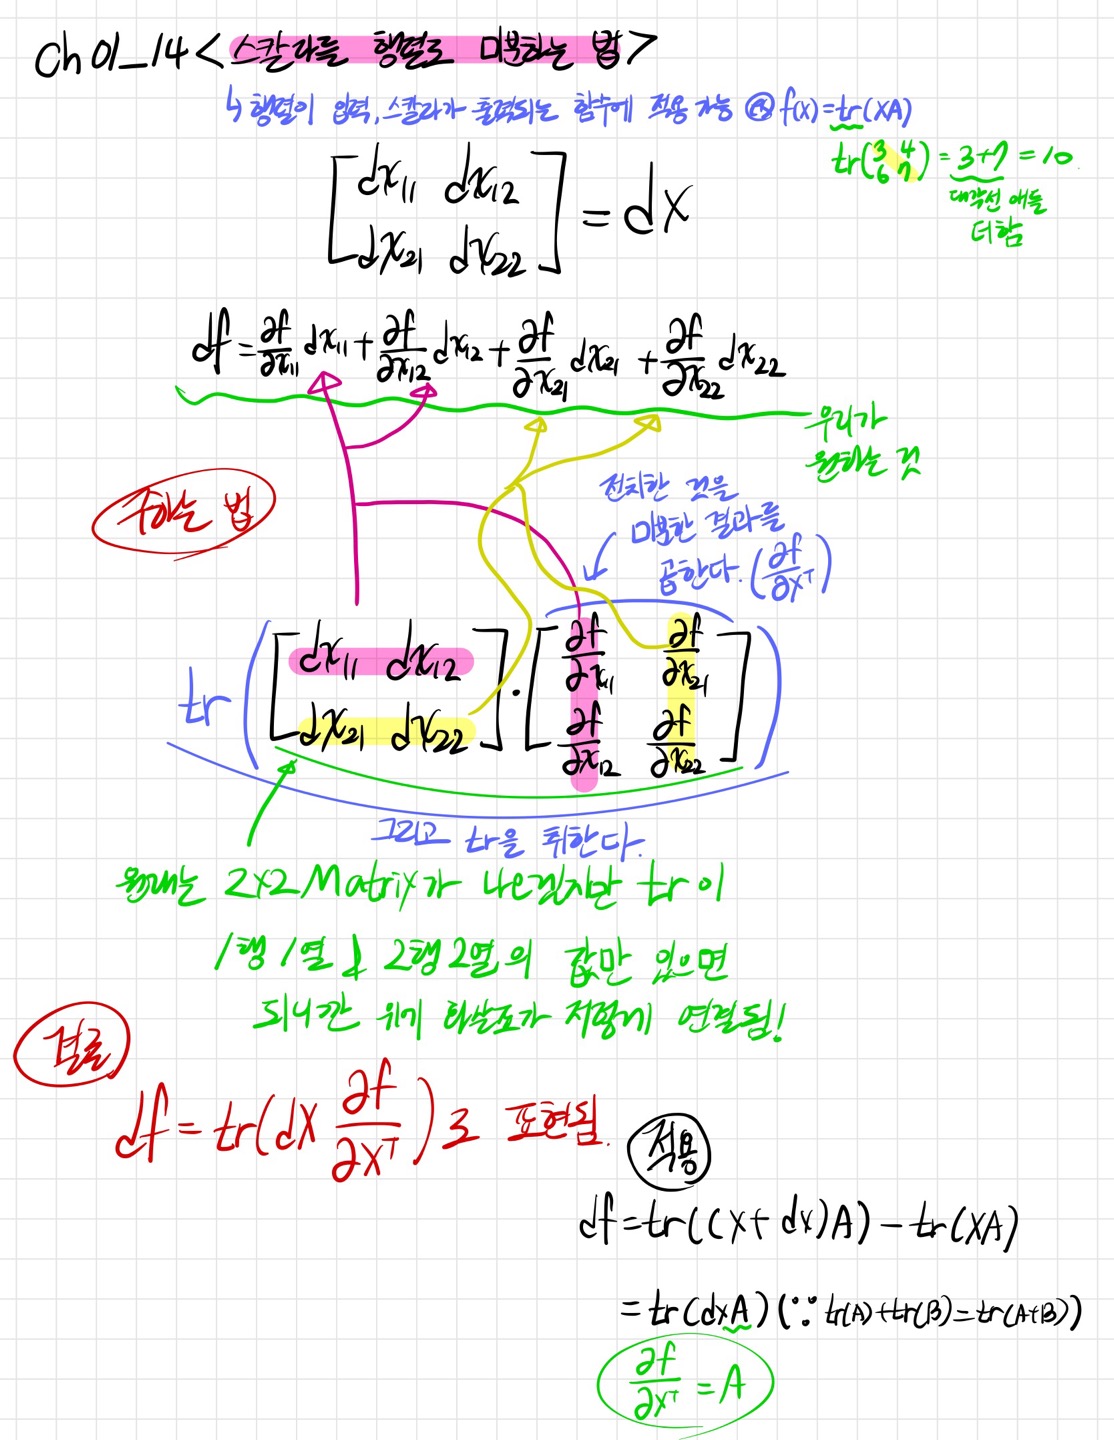 Ch 01_14 <스칼라를 행렬로 미분하는 법>
↳ 행렬이 입력, 스칼라가 출력되는 함수에 적용 가능 ex f(X)=tr(XA)
tr(3 4
6 7) = 3+7 = 10
대각선 애들
더함
[dx₁₁ dx₁₂
dx₂₁ dx₂₂] = dX
df = ∂f/∂x₁₁ dx₁₁ + ∂f/∂x₁₂ dx₁₂ + ∂f/∂x₂₁ dx₂₁ + ∂f/∂x₂₂ dx₂₂
우리가
원하는 것
구하는 법
전치한 것을
미분한 결과를
곱한다. (∂f/∂Xᵀ)
tr([dx₁₁ dx₁₂
dx₂₁ dx₂₂] · [∂f/∂x₁₁ ∂f/∂x₂₁
∂f/∂x₁₂ ∂f/∂x₂₂])
그리고 tr을 취한다.
원래는 2x2 Matrix가 나오겠지만 tr이
1행 1열 & 2행 2열의 값만 있으면
되니깐 위에 화살표가 저렇게 연결됨!
결론
df = tr(dX ∂f/∂Xᵀ)로 표현됨.
적용
df = tr((X+dX)A) - tr(XA)
= tr(dXA) (∵ tr(A)+tr(B)=tr(A+B))
∂f/∂Xᵀ = A